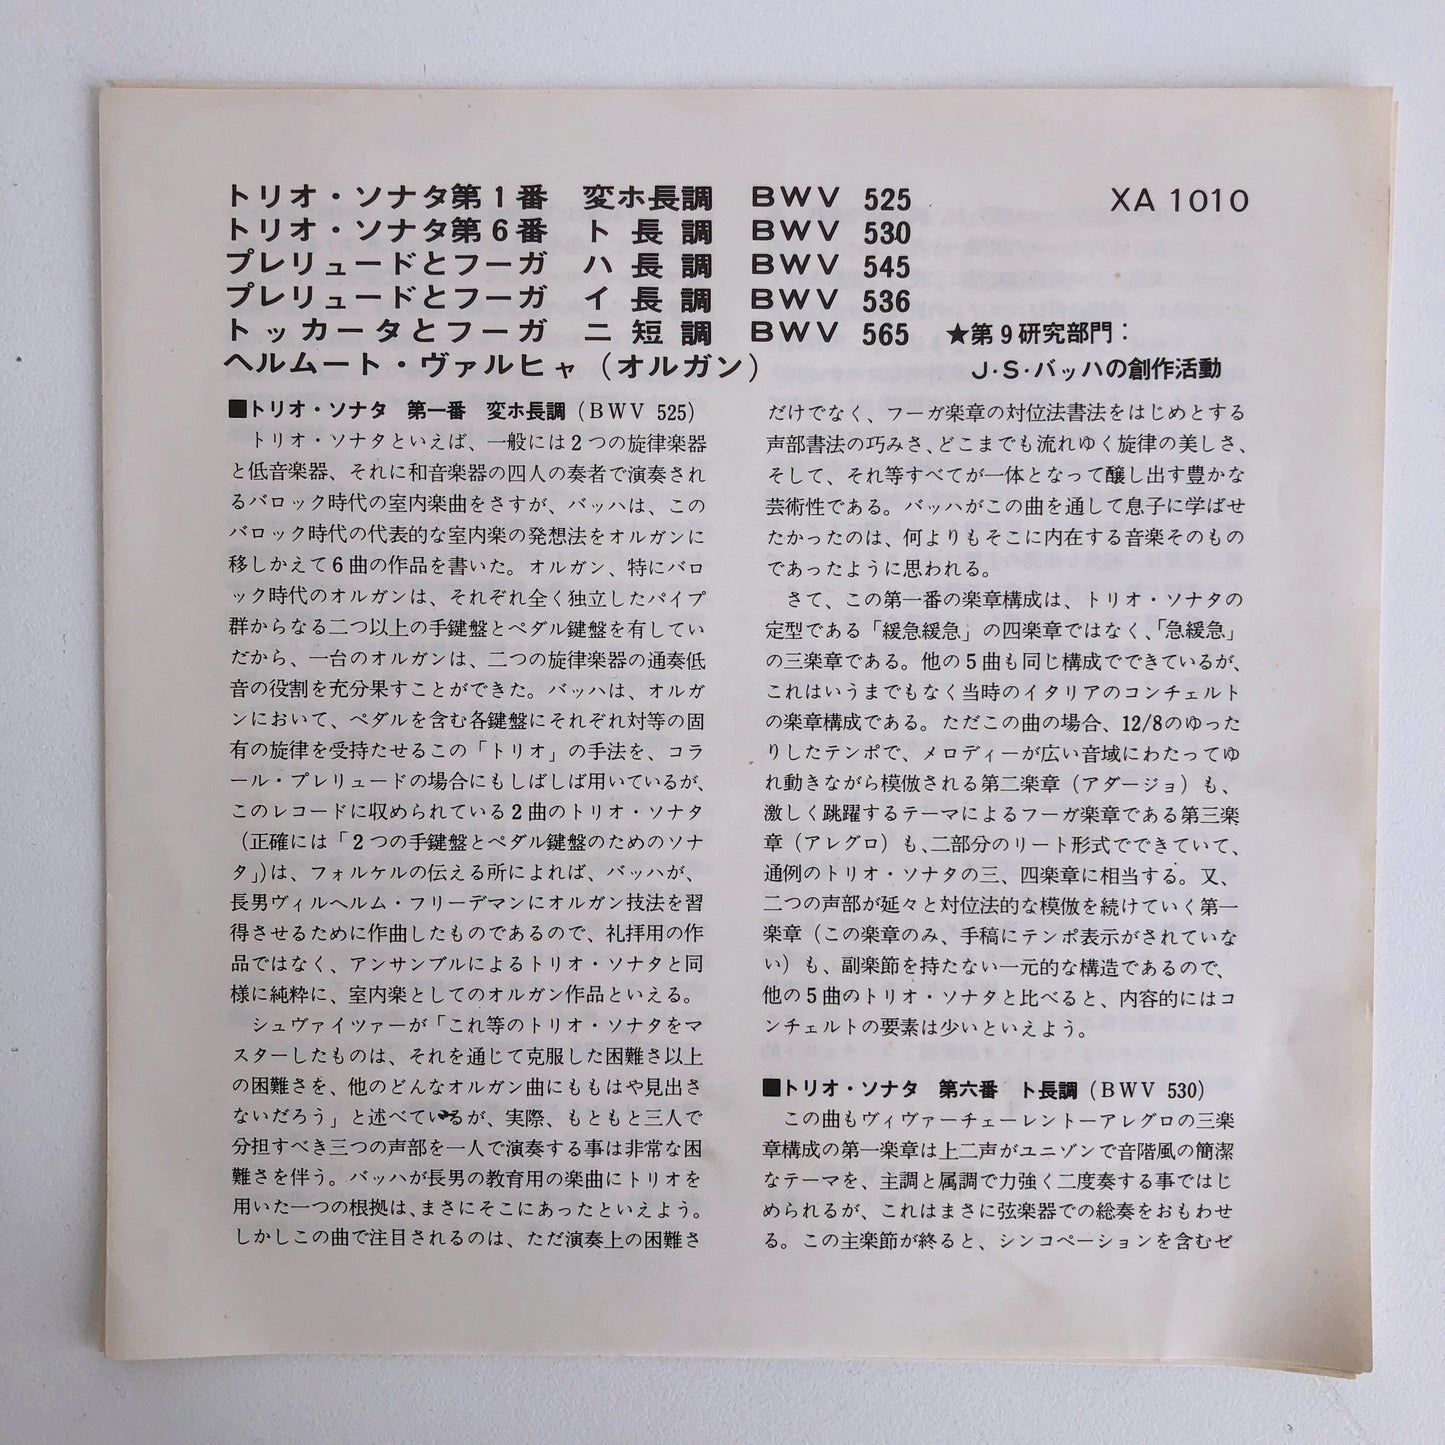 トリオ・ソナタ第1番 変ホ長調 BWV 525 XA 1010
トリオ・ソナタ第6番 ト長調 BWV 530
プレリュードとフーガ ハ長調 BWV 545
プレリュードとフーガ イ長調 BWV 536
トッカータとフーガ ニ短調 BWV 565 ★第9研究部門：
ヘルムート・ヴァルヒャ（オルガン） J・S・バッハの創作活動
■トリオ・ソナタ 第一番 変ホ長調（BWV 525）
トリオ・ソナタといえば、一般には2つの旋律楽器
と低音楽器、それに和音楽器の四人の奏者で演奏され
るバロック時代の室内楽曲をさすが、バッハは、この
バロック時代の代表的な室内楽の発想法をオルガンに
移しかえて6曲の作品を書いた。オルガン、特にバロ
ック時代のオルガンは、それぞれ全く独立したパイプ
群からなる二つ以上の手鍵盤とペダル鍵盤を有してい
だから、一台のオルガンは、二つの旋律楽器の通奏低
音の役割を充分果すことができた。バッハは、オルガ
ンにおいて、ペダルを含む各鍵盤にそれぞれ対等の固
有の旋律を受持たせるこの「トリオ」の手法を、コラ
ール・プレリュードの場合にもしばしば用いているが、
このレコードに収められている2曲のトリオ・ソナタ
（正確には「2つの手鍵盤とペダル鍵盤のためのソナ
タ」）は、フォルケルの伝える所によれば、バッハが、
長男ヴィルヘルム・フリーデマンにオルガン技法を習
得させるために作曲したものであるので、礼拝用の作
品ではなく、アンサンブルによるトリオ・ソナタと同
様に純粋に、室内楽としてのオルガン作品といえる。
シュヴァイツァーが「これ等のトリオ・ソナタをマ
スターしたものは、それを通じて克服した困難さ以上
の困難さを、他のどんなオルガン曲にももはや見出さ
ないだろう」と述べているが、実際、もともと三人で
分担すべき三つの声部を一人で演奏する事は非常な困
難さを伴う。バッハが長男の教育用の楽曲にトリオを
用いた一つの根拠は、まさにそこにあったといえよう。
しかしこの曲で注目されるのは、ただ演奏上の困難さ
だけでなく、フーガ楽章の対位法書法をはじめとする
声部書法の巧みさ、どこまでも流れゆく旋律の美しさ、
そして、それ等すべてが一体となって醸し出す豊かな
芸術性である。バッハがこの曲を通して息子に学ばせ
たかったのは、何よりもそこに内在する音楽そのもの
であったように思われる。
さて、この第一番の楽章構成は、トリオ・ソナタの
定型である「緩急緩急」の四楽章ではなく、「急緩急」
の三楽章である。他の5曲も同じ構成でできているが、
これはいうまでもなく当時のイタリアのコンチェルト
の楽章構成である。ただこの曲の場合、12/8のゆった
りしたテンポで、メロディーが広い音域にわたってゆ
れ動きながら模倣される第二楽章（アダージョ）も、
激しく跳躍するテーマによるフーガ楽章である第三楽
章（アレグロ）も、二部分のリート形式でできていて、
通例のトリオ・ソナタの三、四楽章に相当する。又、
二つの声部が延々と対位法的な模倣を続けていく第一
楽章（この楽章のみ、手稿にテンポ表示がされていな
い）も、副楽節を持たない一元的な構造であるので、
他の5曲のトリオ・ソナタと比べると、内容的にはコ
ンチェルトの要素は少いといえよう。
■トリオ・ソナタ 第六番 ト長調（BWV 530）
この曲もヴィヴァーチェーレントーアレグロの三楽
章構成の第一楽章は上二声がユニゾンで音階風の簡潔
なテーマを、主調と属調で力強く二度奏する事ではじ
められるが、これはまさに弦楽器での総奏をおもわせ
る。この主楽節が終ると、シンコペーションを含むゼ